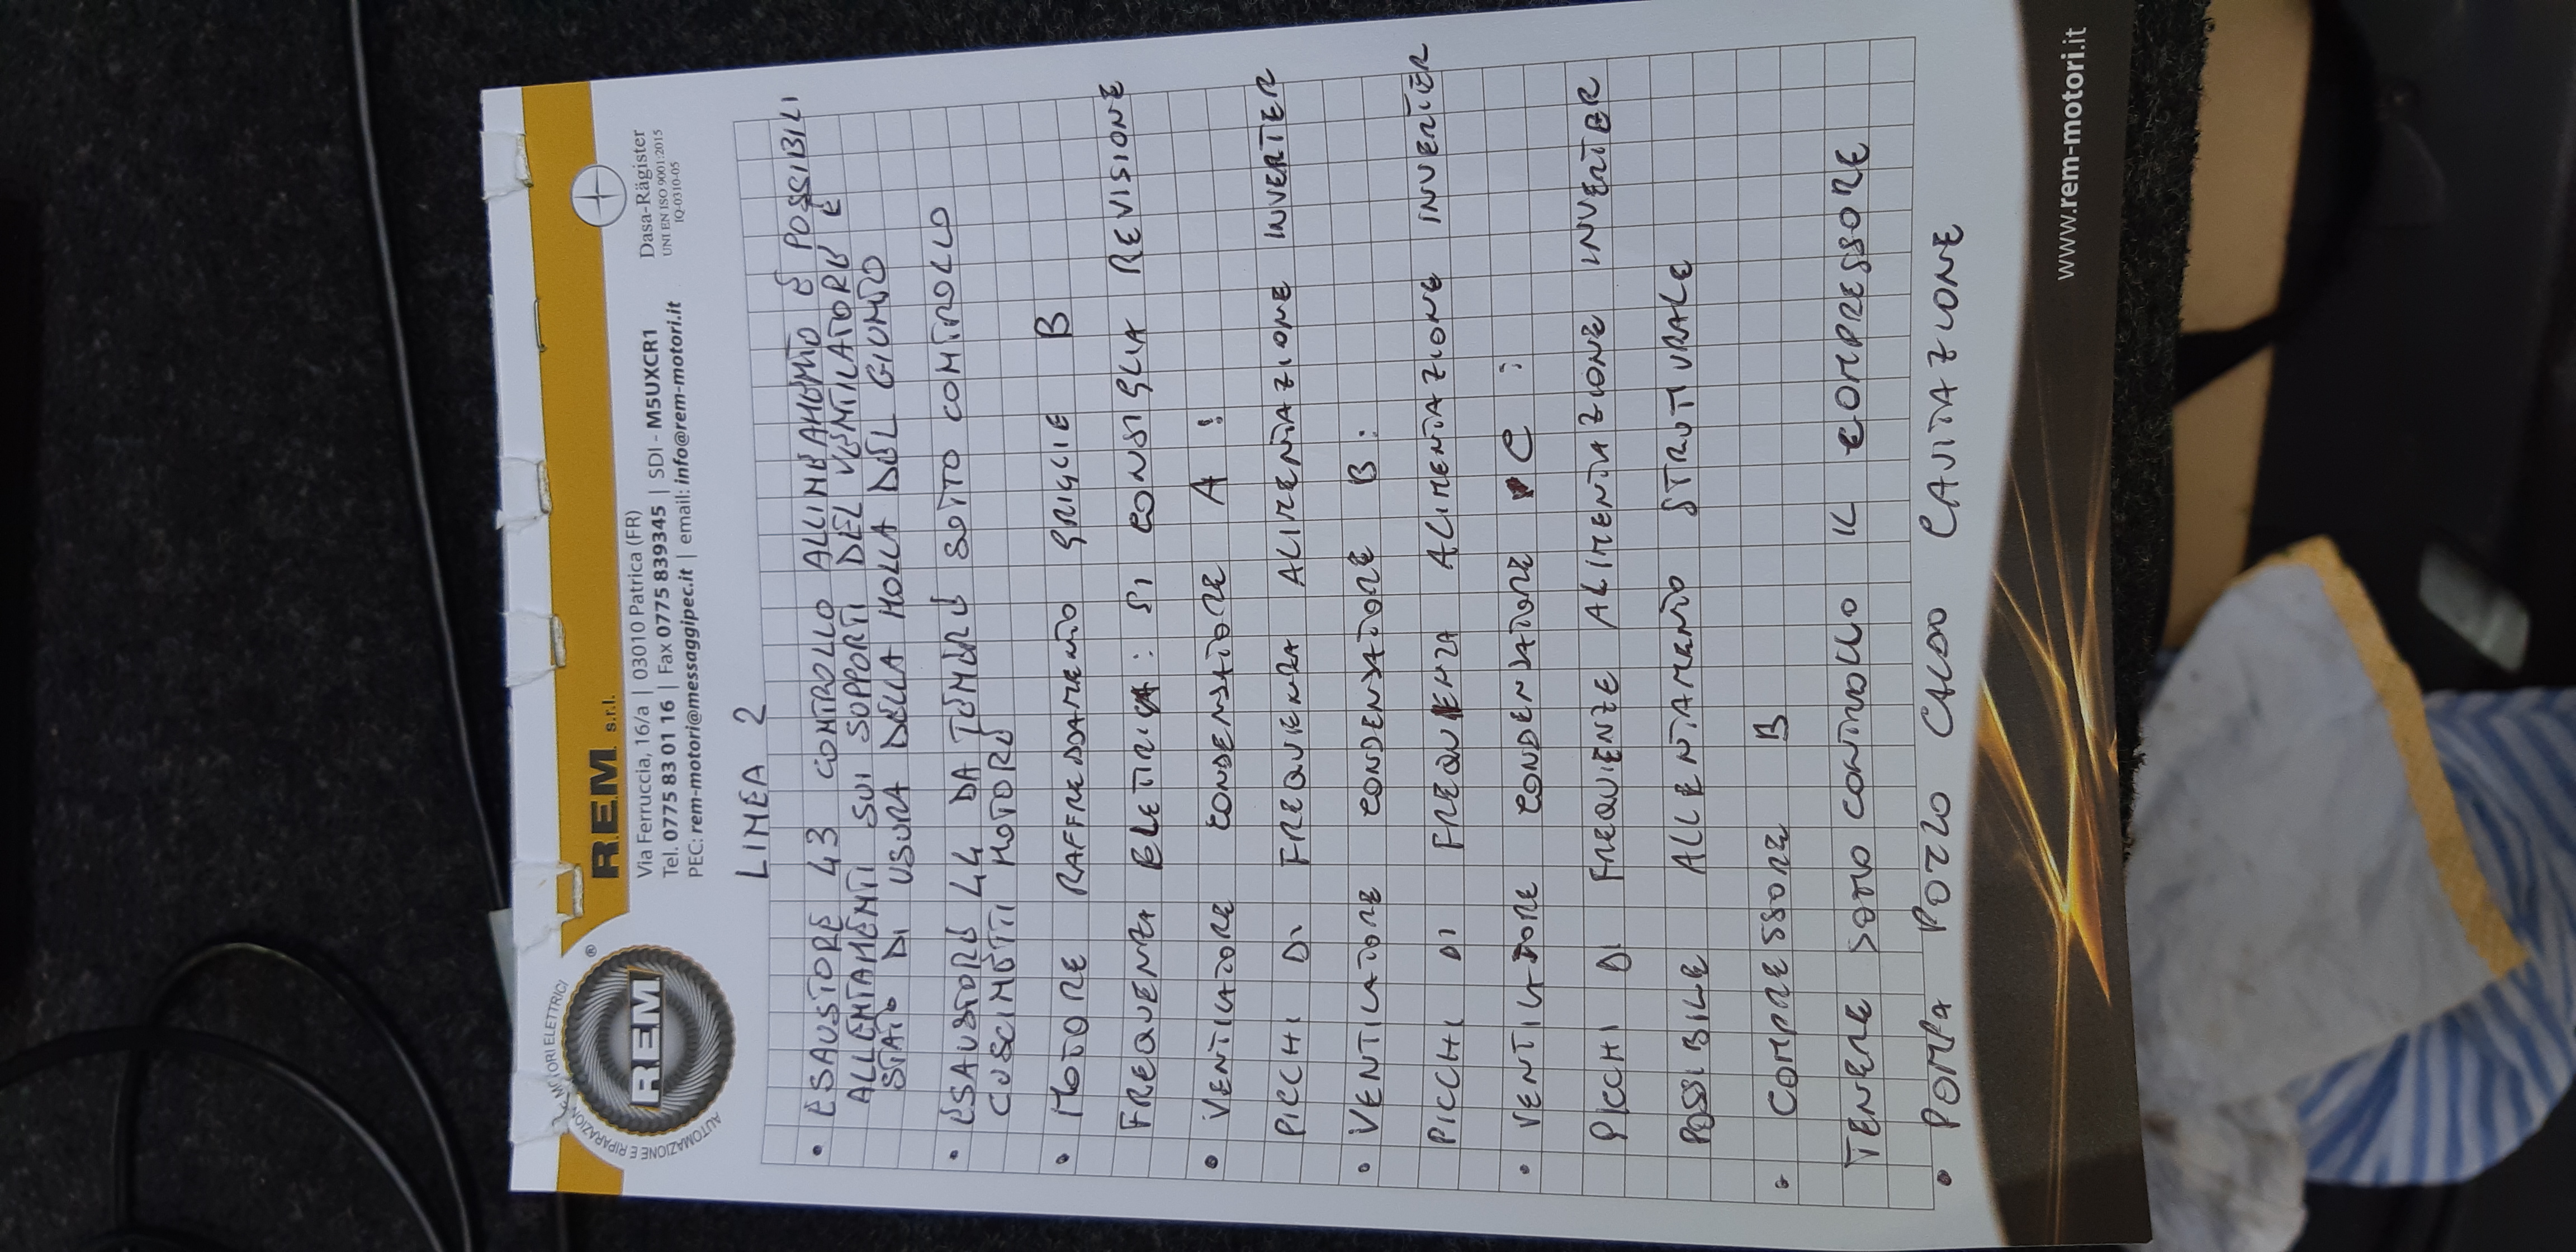 AUTOMAZIONE E RIPARAZIONE MOTORI ELETTRICI
REM
®
R.E.M. s.r.l.
Via Ferruccia, 16/a | 03010 Patrica (FR)
Tel. 0775 83 01 16 | Fax 0775 839345 | SDI - M5UXCR1
PEC: rem-motori@messaggipec.it | email: info@rem-motori.it
Dasa-Rägister
UNI EN ISO 9001:2015
IQ-0310-05
LINEA 2
• ESAUSTORE 43 CONTROLLO ALLINEAMENTO E POSSIBILI
ALLENTAMENTI SUI SUPPORTI DEL VENTILATORE E
STATO DI USURA DELLA MOLLA DEL GIUNTO
• ESAUSTORE 44 DA TENERE SOTTO CONTROLLO
CUSCINETTI MOTORE
• MOTORE RAFFREDDAMENTO GRIGLIE B
FREQUENZA ELETTRICA: SI CONSIGLIA REVISIONE
• VENTILATORE CONDENSATORE A :
PICCHI DI FREQUENZA ALIMENTAZIONE INVERTER
• VENTILATORE CONDENSATORE B :
PICCHI DI FREQUENZA ALIMENTAZIONE INVERTER
• VENTILATORE CONDENSATORE C :
PICCHI DI FREQUENZE ALIMENTAZIONE INVERTER
POSSIBILE ALLENTAMENTO STRUTTURALE
• COMPRESSORE B
TENERE SOTTO CONTROLLO IL COMPRESSORE
• POMPA POZZO CALDO CAVITAZIONE
www.rem-motori.it